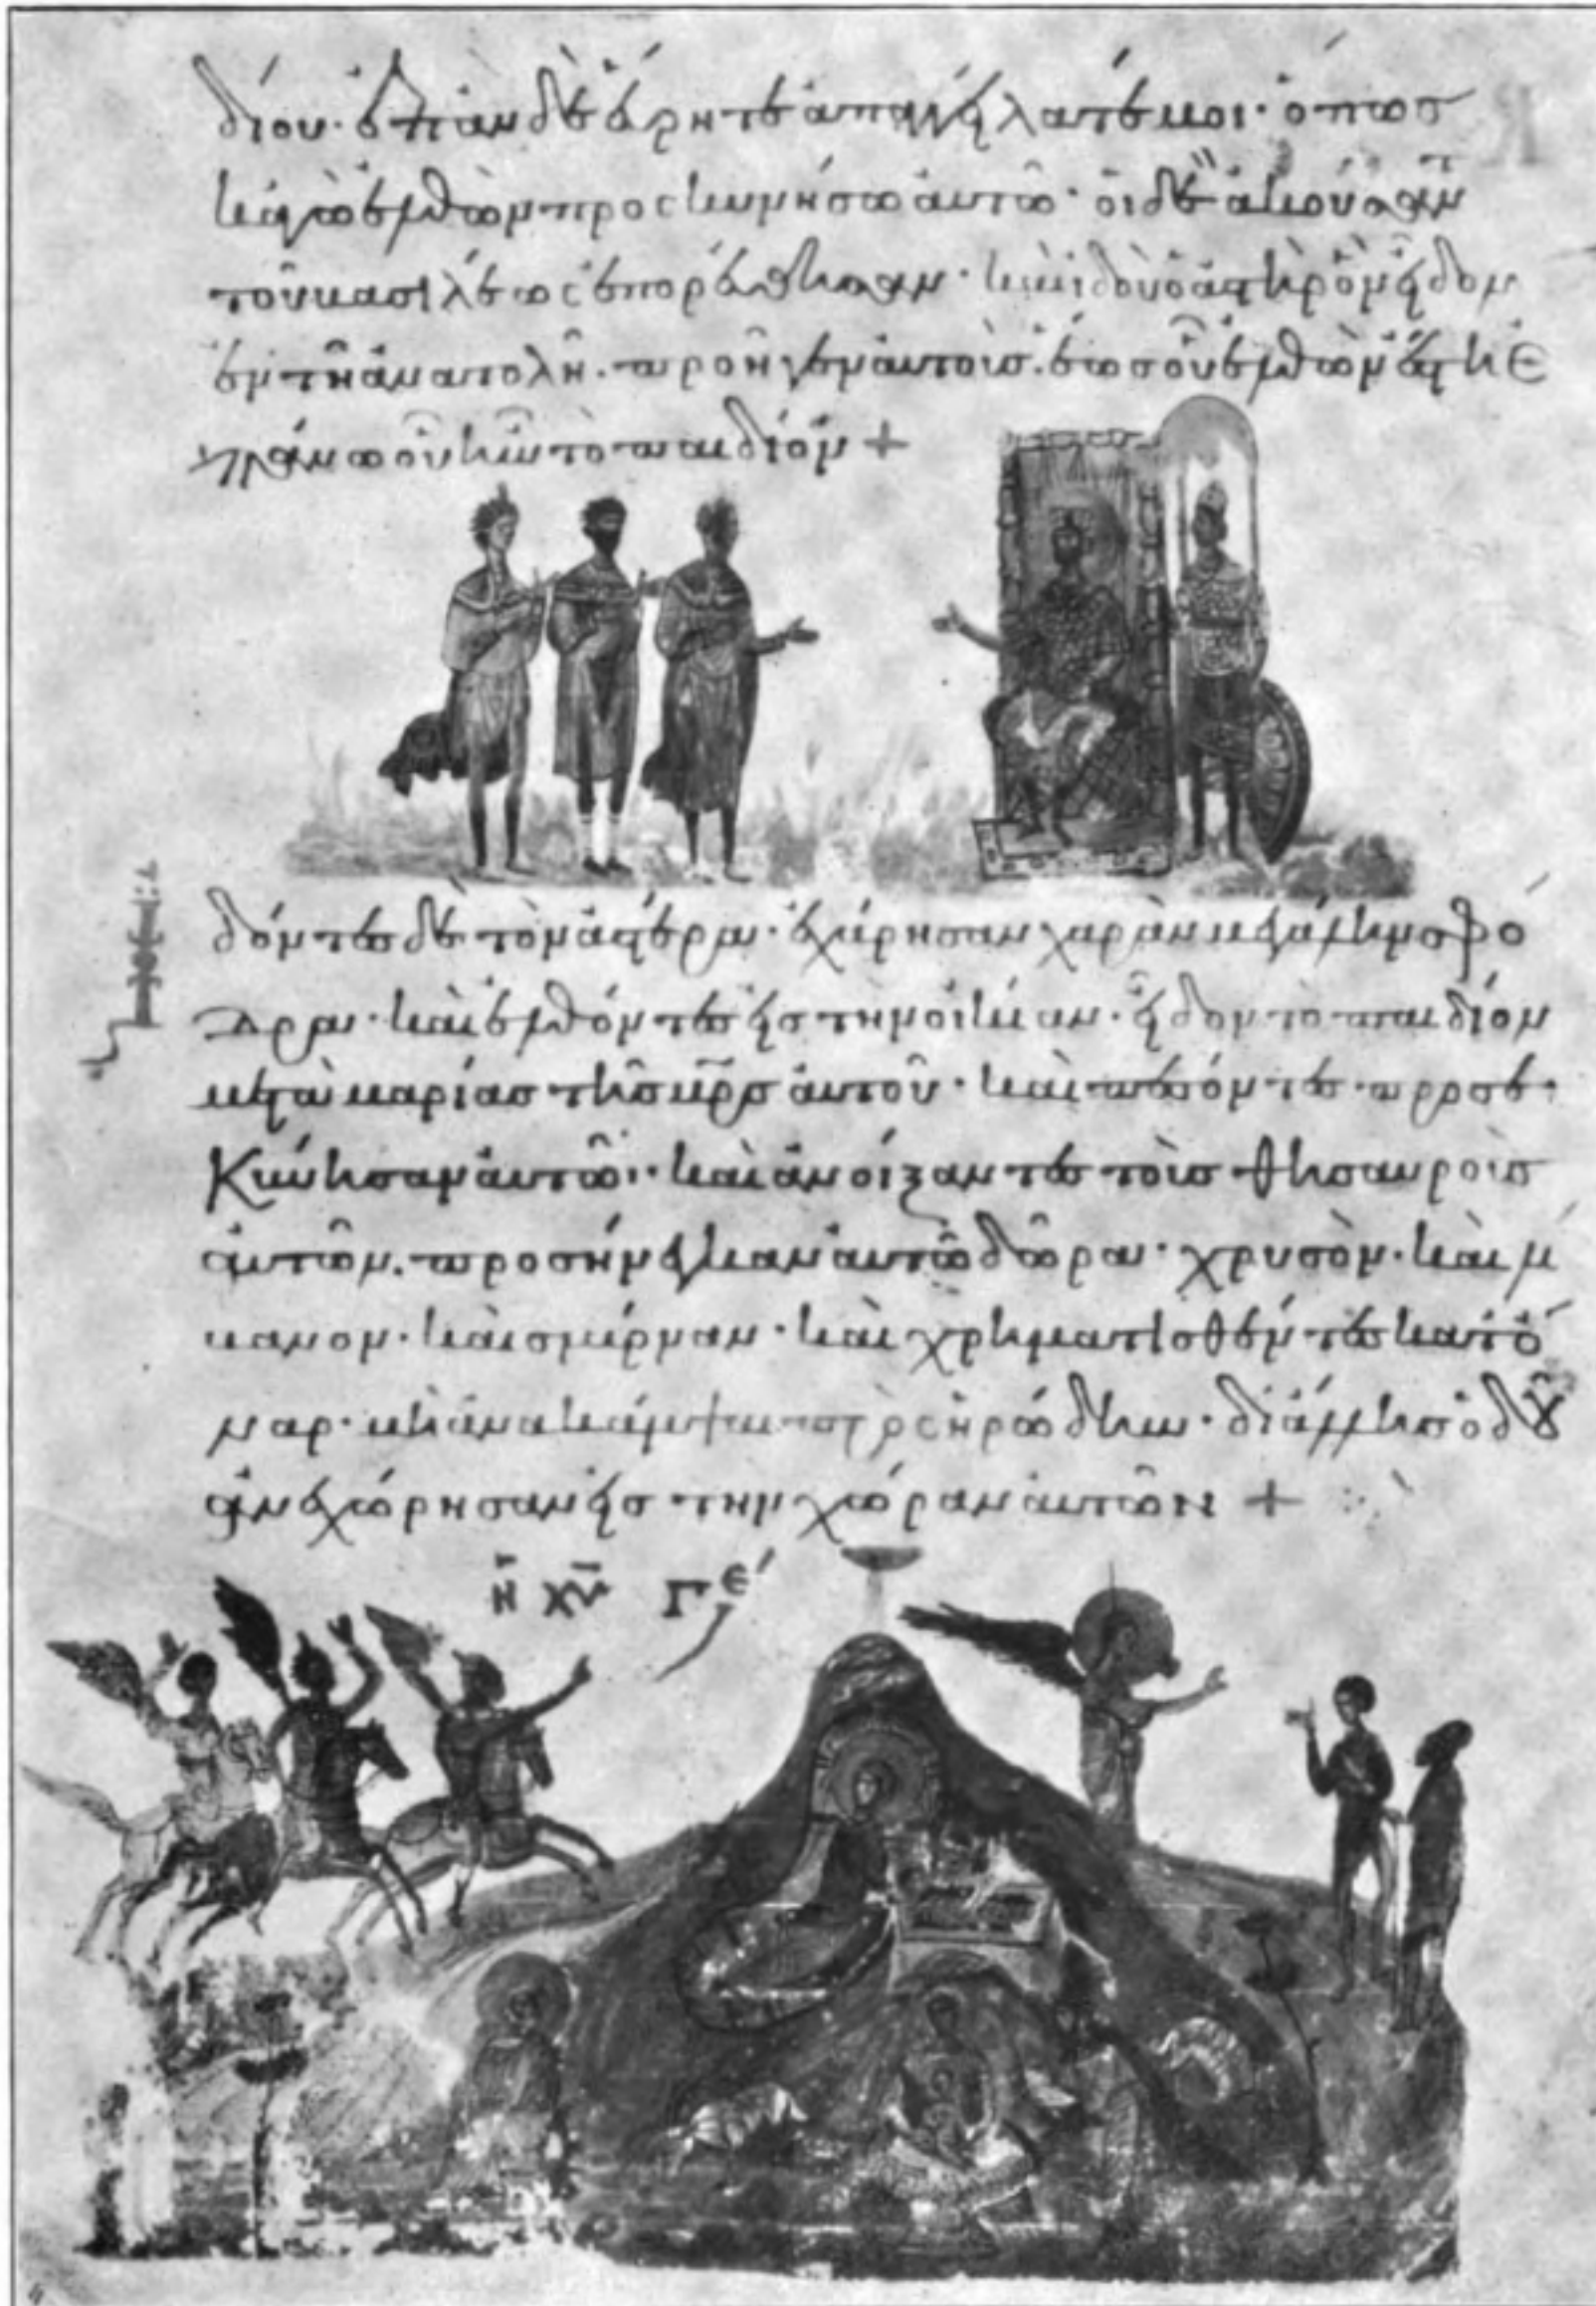 δίου· ἐπὰν δὲ εὕρητε ἀπαγγείλατέ μοι· ὅπως
κἀγὼ ἐλθὼν προσκυνήσω αὐτῶ· οἱ δὲ ἀκούσαντ
τοῦ βασιλέως ἐπορεύθησαν· καὶ ἰδοὺ ὁ ἀστὴρ ὃν εἶδον
ἐν τῆ ἀνατολῆ· προῆγεν αὐτοῖσ· ἕωσ οὗ ἐλθὼν ἔστη ἐ
πράνω οὗ ἦν τὸ παιδίον +
δόντες δὲ τὸν ἀστέρα· ἐχάρησαν χαρὰν μεγάλην σφό
δρα· καὶ ἐλθόντες εἰσ τὴν οἰκίαν· εἶδον τὸ παιδίον
μετὰ μαρίασ τῆσ μρσ αὐτοῦ· καὶ πεσόντες προσε
κύνησαν αὐτῶ· καὶ ἀνοίξαντες τοὶσ θησαυροὶσ
αὐτῶν· προσήνεγκαν αὐτῶ δῶρα· χρυσὸν· καὶ λί
βανον· καὶ σμύρναν· καὶ χρηματισθέντες κατ ὄ
ναρ· μὴ ἀνακάμψαι πρὸς ἡρώδην· δι ἄλλησ ὁδοῦ
ἀνεχώρησαν εἰσ τὴν χώραν αὐτῶν +
ἡ χυ γε